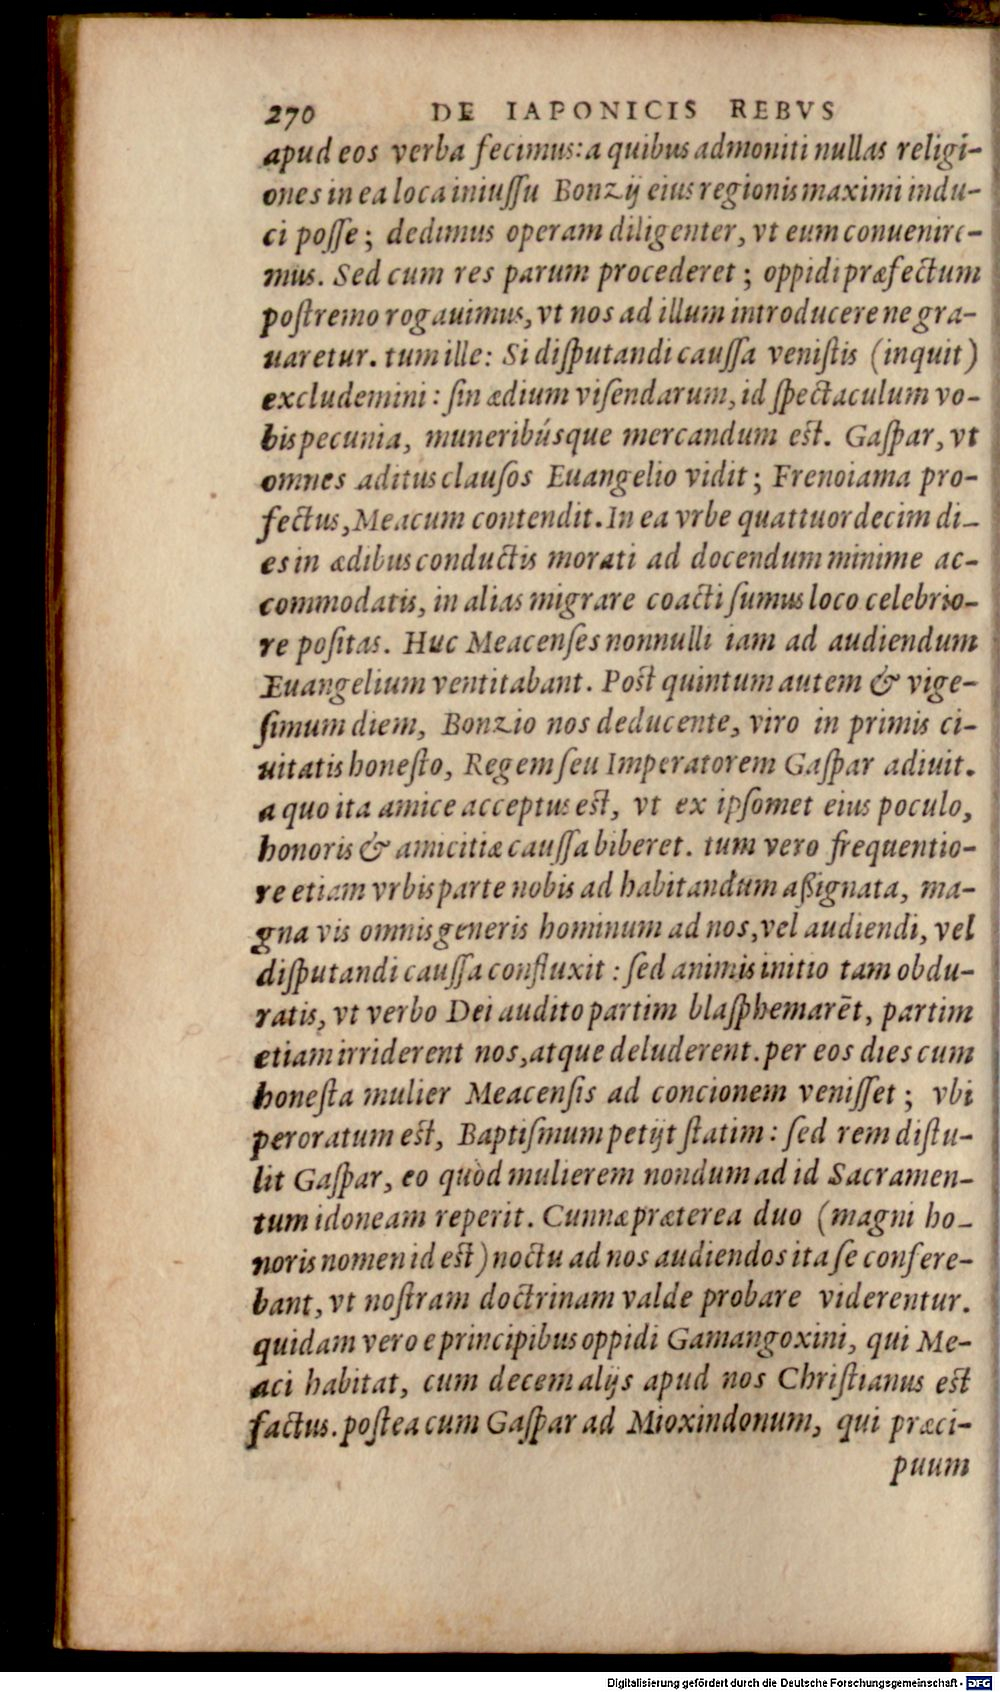 270 DE IAPONICIS REBVS
apud eos verba fecimus: a quibus admoniti nullas religi-
ones in ea loca iniussu Bonzij eius regionis maximi indu-
ci posse; dedimus operam diligenter, vt eum conuenire-
mus. Sed cum res parum procederet; oppidi præfectum
postremo rogauimus, vt nos ad illum introducere ne gra-
uaretur. tum ille: Si disputandi caussa venistis (inquit)
excludemini: sin ædium visendarum, id spectaculum vo-
bis pecunia, muneribúsque mercandum est. Gaspar, vt
omnes aditus clausos Euangelio vidit; Frenoiama pro-
fectus, Meacum contendit. In ea vrbe quattuordecim di-
es in ædibus conductis morati ad docendum minime ac-
commodatis, in alias migrare coacti sumus loco celebrio-
re positas. Huc Meacenses nonnulli iam ad audiendum
Euangelium ventitabant. Post quintum autem & vige-
simum diem, Bonzio nos deducente, viro in primis ci-
uitatis honesto, Regem seu Imperatorem Gaspar adiuit.
a quo ita amice acceptus est, vt ex ipsomet eius poculo,
honoris & amicitiæ caussa biberet. tum vero frequentio-
re etiam vrbis parte nobis ad habitandum aßignata, ma-
gna vis omnis generis hominum ad nos, vel audiendi, vel
disputandi caussa confluxit: sed animis initio tam obdu-
ratis, vt verbo Dei audito partim blasphemarēt, partim
etiam irriderent nos, atque deluderent. per eos dies cum
honesta mulier Meacensis ad concionem venisset; vbi
peroratum est, Baptismum petijt statim: sed rem distu-
lit Gaspar, eo quòd mulierem nondum ad id Sacramen-
tum idoneam reperit. Cunnæ præterea duo (magni ho-
noris nomen id est) noctu ad nos audiendos ita se confere-
bant, vt nostram doctrinam valde probare viderentur.
quidam vero e principibus oppidi Gamangoxini, qui Me-
aci habitat, cum decem alijs apud nos Christianus est
factus. postea cum Gaspar ad Mioxindonum, qui præci-
puum
Digitalisierung gefördert durch die Deutsche Forschungsgemeinschaft - DFG